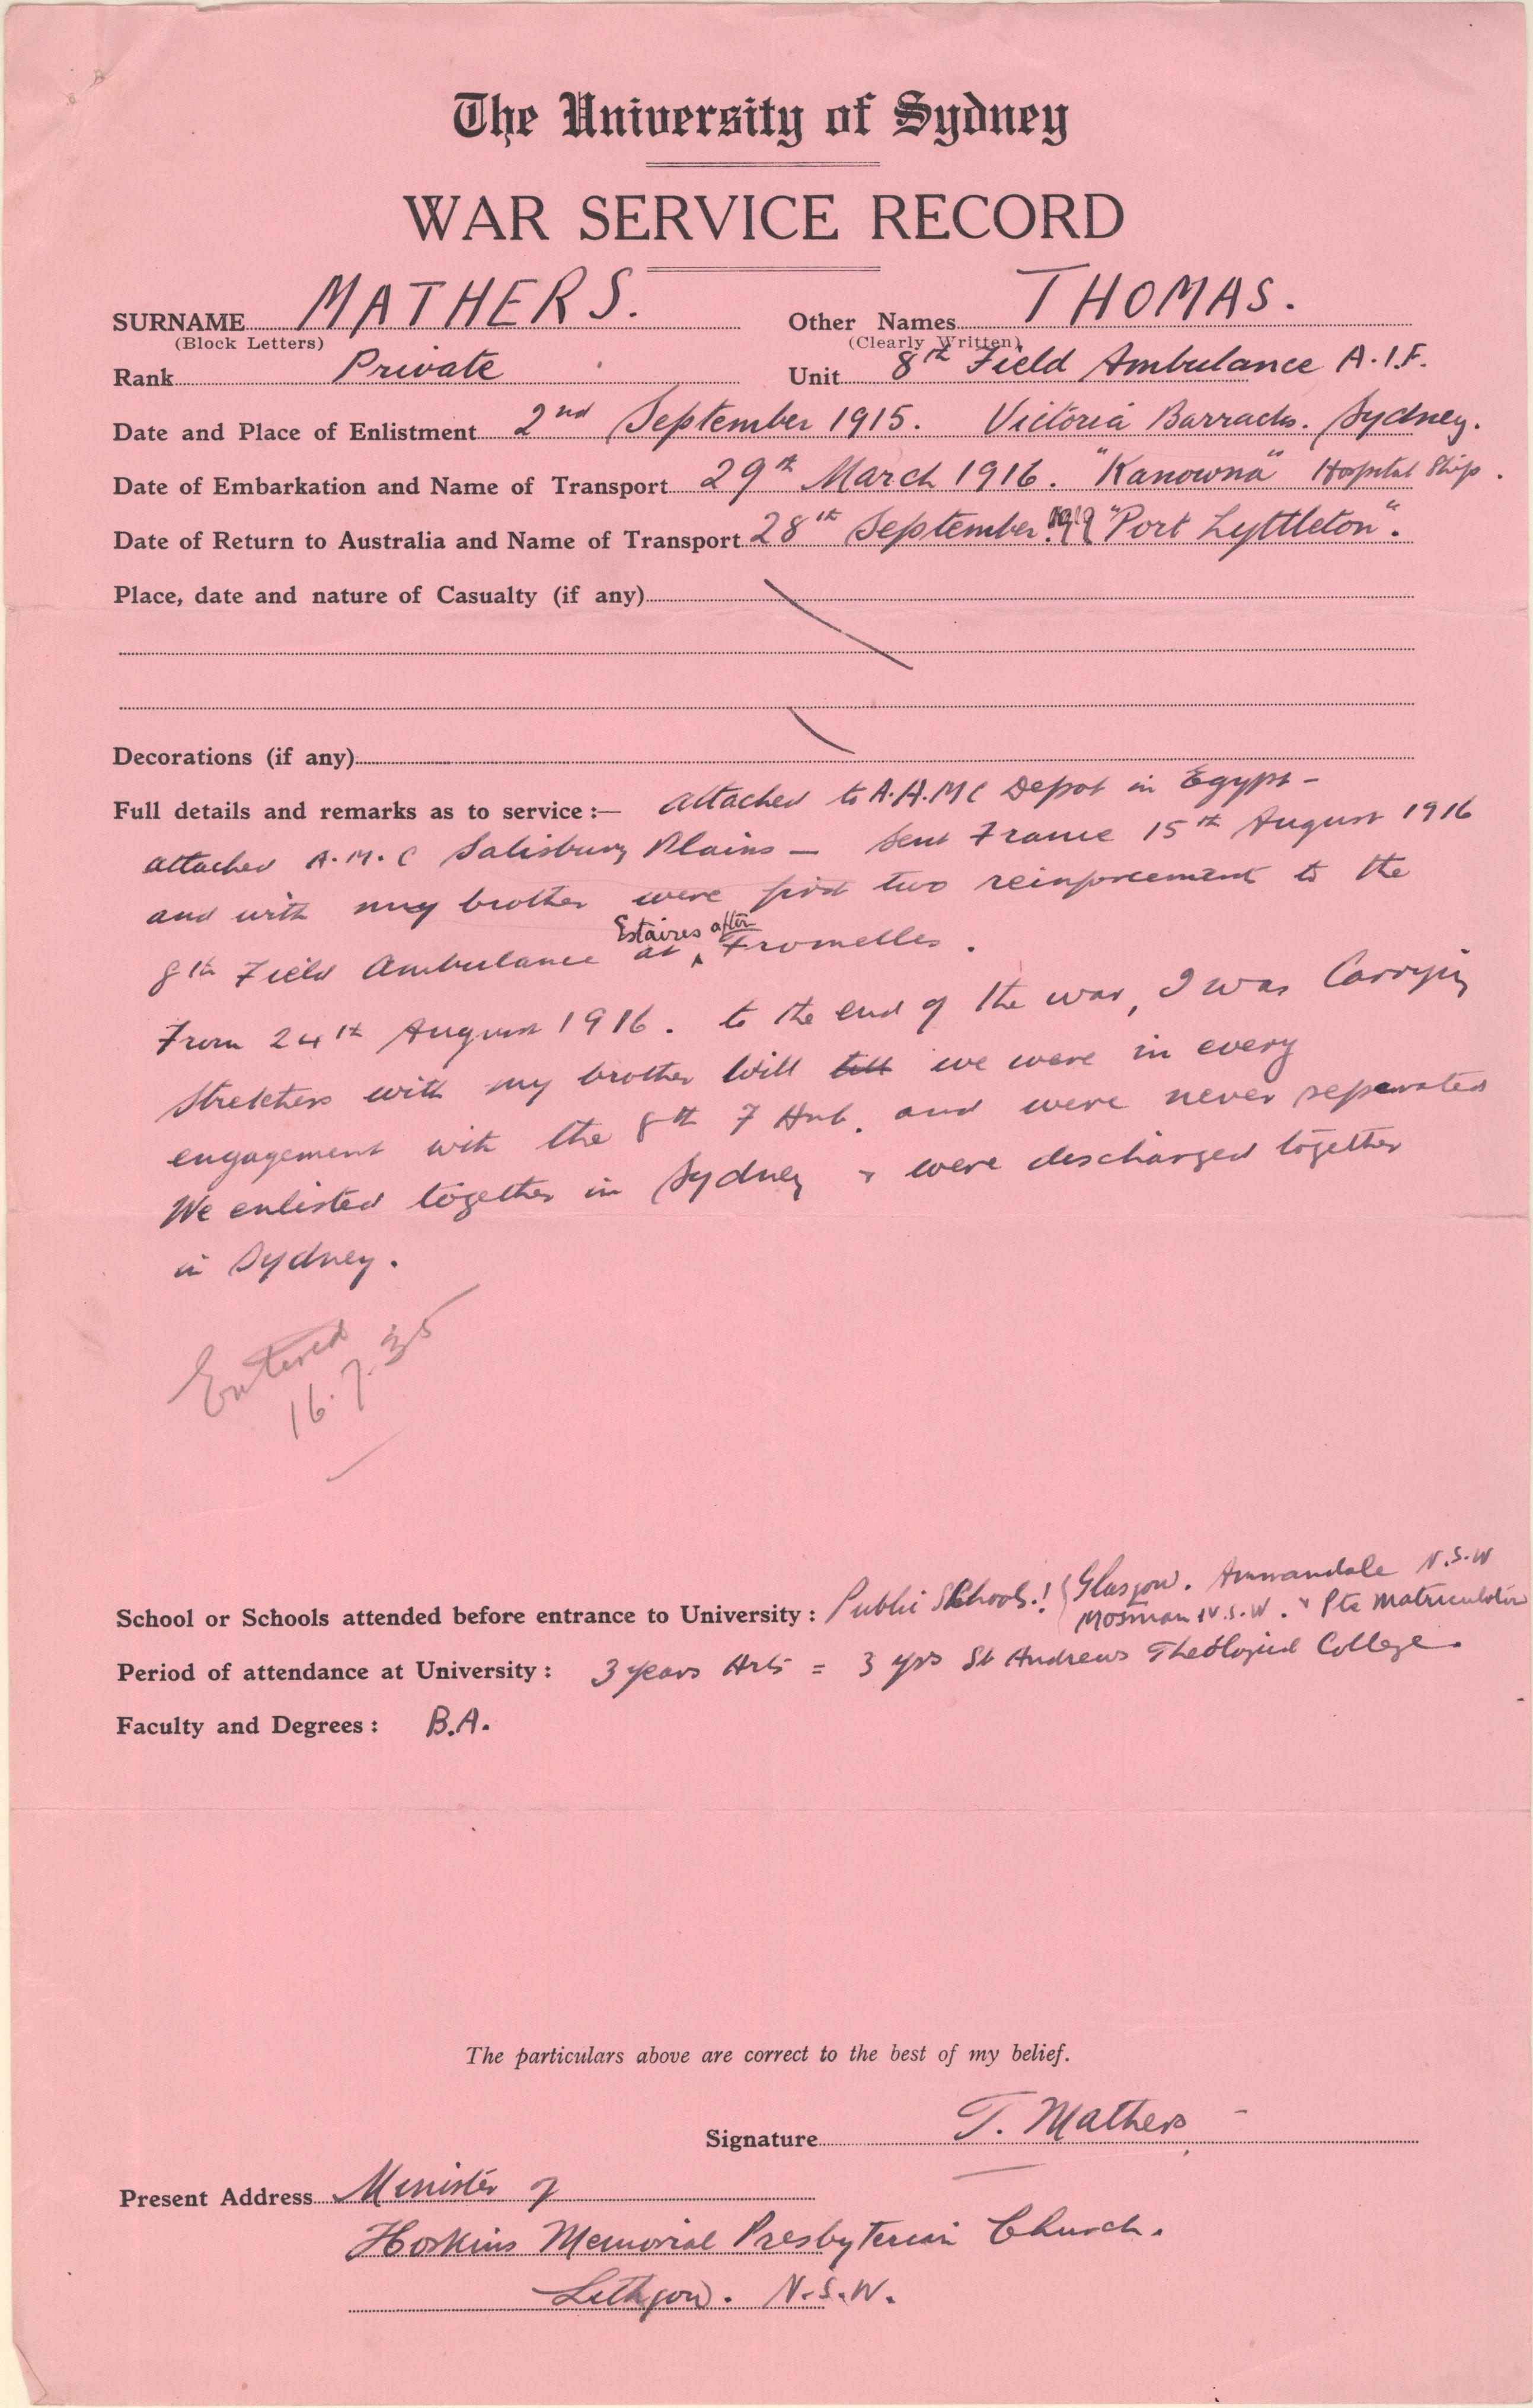 The University of Sydney
WAR SERVICE RECORD
SURNAME MATHERS. Other Names THOMAS.
(Block Letters) (Clearly Written)
Rank Private Unit 8th Field Ambulance A.I.F.
Date and Place of Enlistment 2nd September 1915. Victoria Barracks. Sydney.
Date of Embarkation and Name of Transport 29th March 1916. "Kanowna" Hospital Ship.
Date of Return to Australia and Name of Transport 28th September 1919 "Port Lyttleton".
Place, date and nature of Casualty (if any)
Decorations (if any)
Full details and remarks as to service:— attached to A.A.M.C Depot in Egypt –
attached A.M.C Salisbury Plains – Sent France 15th August 1916
and with my brother were first two reinforcement to the
Estaires after
8th Field Ambulance at Fromelles.
From 24th August 1916. to the end of the war, I was Carrying
Stretchers with my brother Will till we were in every
engagement with the 8th F Amb. and were never separated
We enlisted together in Sydney & were discharged together
in Sydney.
Entered
16.7.35
School or Schools attended before entrance to University: Public Schools.! { Glasgow. Annandale N.S.W
Mosman N.S.W. & Pte Matriculation
Period of attendance at University: 3 years Arts = 3 yrs St Andrews Theological College.
Faculty and Degrees: B.A.
The particulars above are correct to the best of my belief.
Signature T. Mathers
Present Address Minister of
Hoskins Memorial Presbyterian Church.
Lithgow. N.S.W.